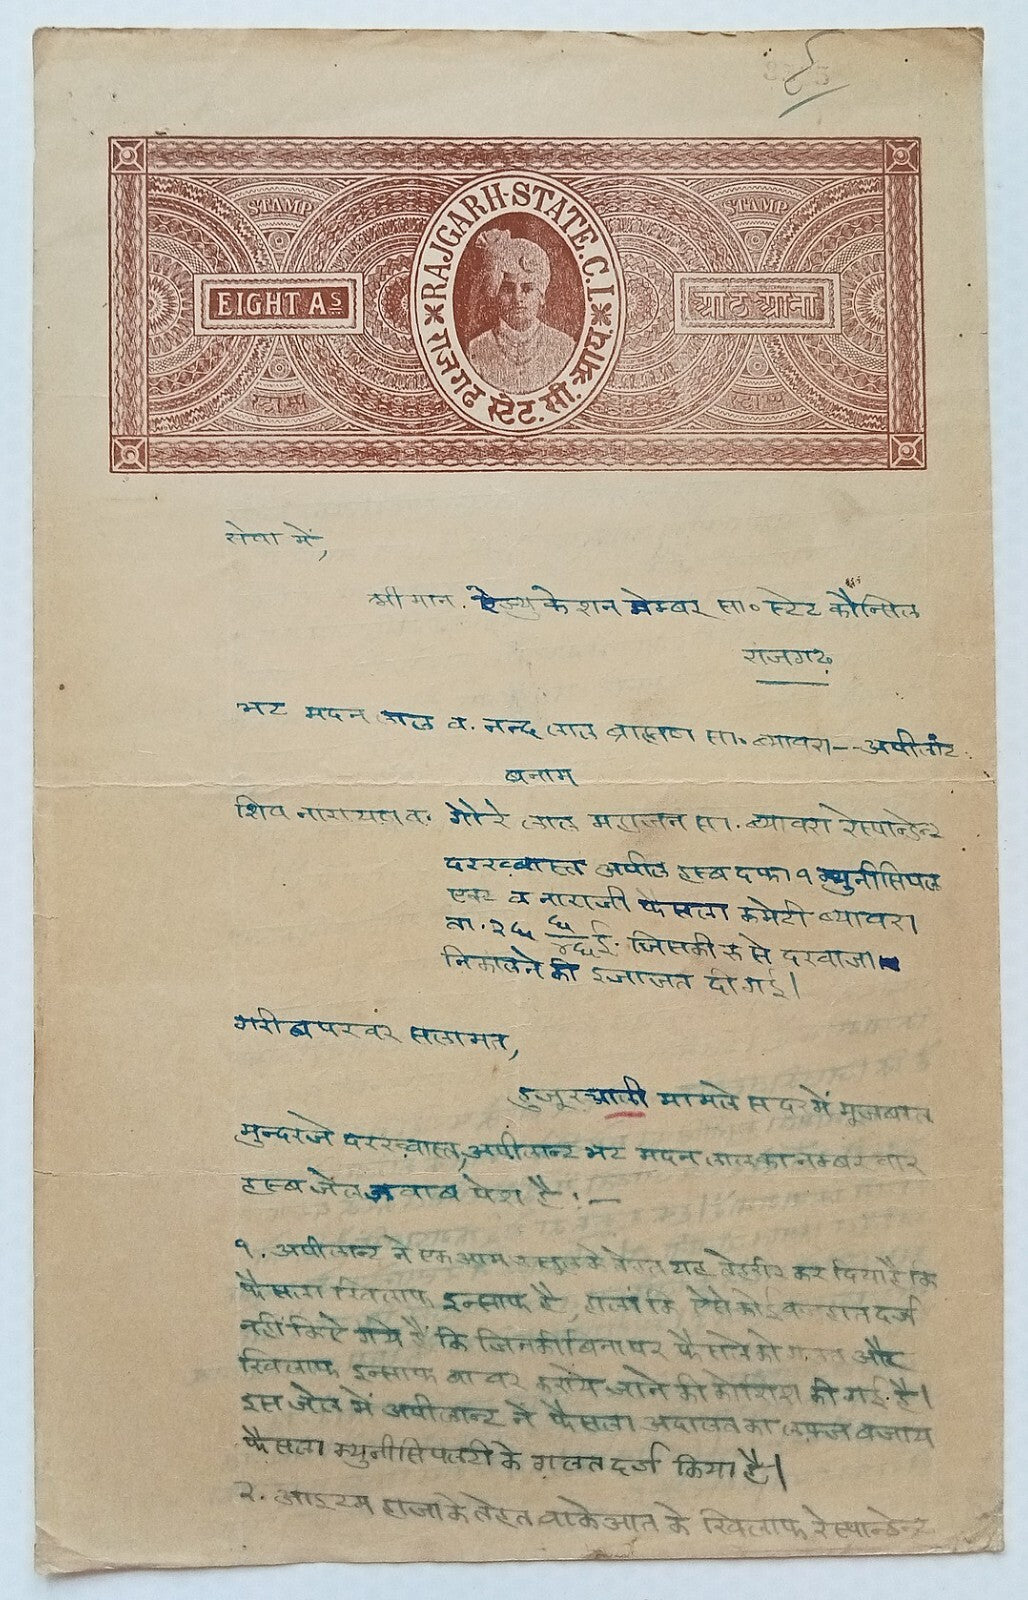 STAMP
STAMP
RAJGARH-STATE.C.I.
EIGHT As
आठ आना
राजगढ स्टेट. सी. आय.
स्टाम्प
स्टाम्प
सेवा में,
श्रीमान. ऐज्युकेशन मेम्बर सा० स्टेट कौन्सिल
राजगढ़
भट मदन लाल व. नन्द लाल ब्राह्मण सा. ब्यावरा -- अपीलांट
बनाम
शिव नारायण व. गोरे लाल महाजन सा. ब्यावरा रेस्पान्डेन्ट
दरख्वास्त अपील हस्ब दफा १ म्युनीसिपल
एक्ट व नाराजी फैसला कमेटी ब्यावरा
ता. २६ ६/४६ ई. जिसकी रू से दरवाजा
निकालने की इजाजत दी गई।
गरीब परवर सलामत,
हुजूर आली मामले सदर में मूजबात
मुन्दरजे दरख्वास्त, अपीलान्ट भट मदन लाल का नम्बर वार
हस्ब जेल जवाब पेश है :—
१. अपीलान्ट ने एक आम उसूल के तेहत यह तेहरीर कर दिया है कि
फैसला खिलाफ इन्साफ है, हालां कि ऐसे कोई वजूहात दर्ज
नहीं किऐ गये हैं कि जिनकी बिना पर फैसले को गलत और
खिलाफ इन्साफ बावर कराये जाने की कोशिश की गई है।
इस जेल में अपीलान्ट ने फैसला अदालत का लफ्ज बजाय
फैसला म्युनीसिपलटी के गलत दर्ज किया है।
२. आइटम हाजा के तेहत वाकेआत के खिलाफ रेस्पान्डेन्ट